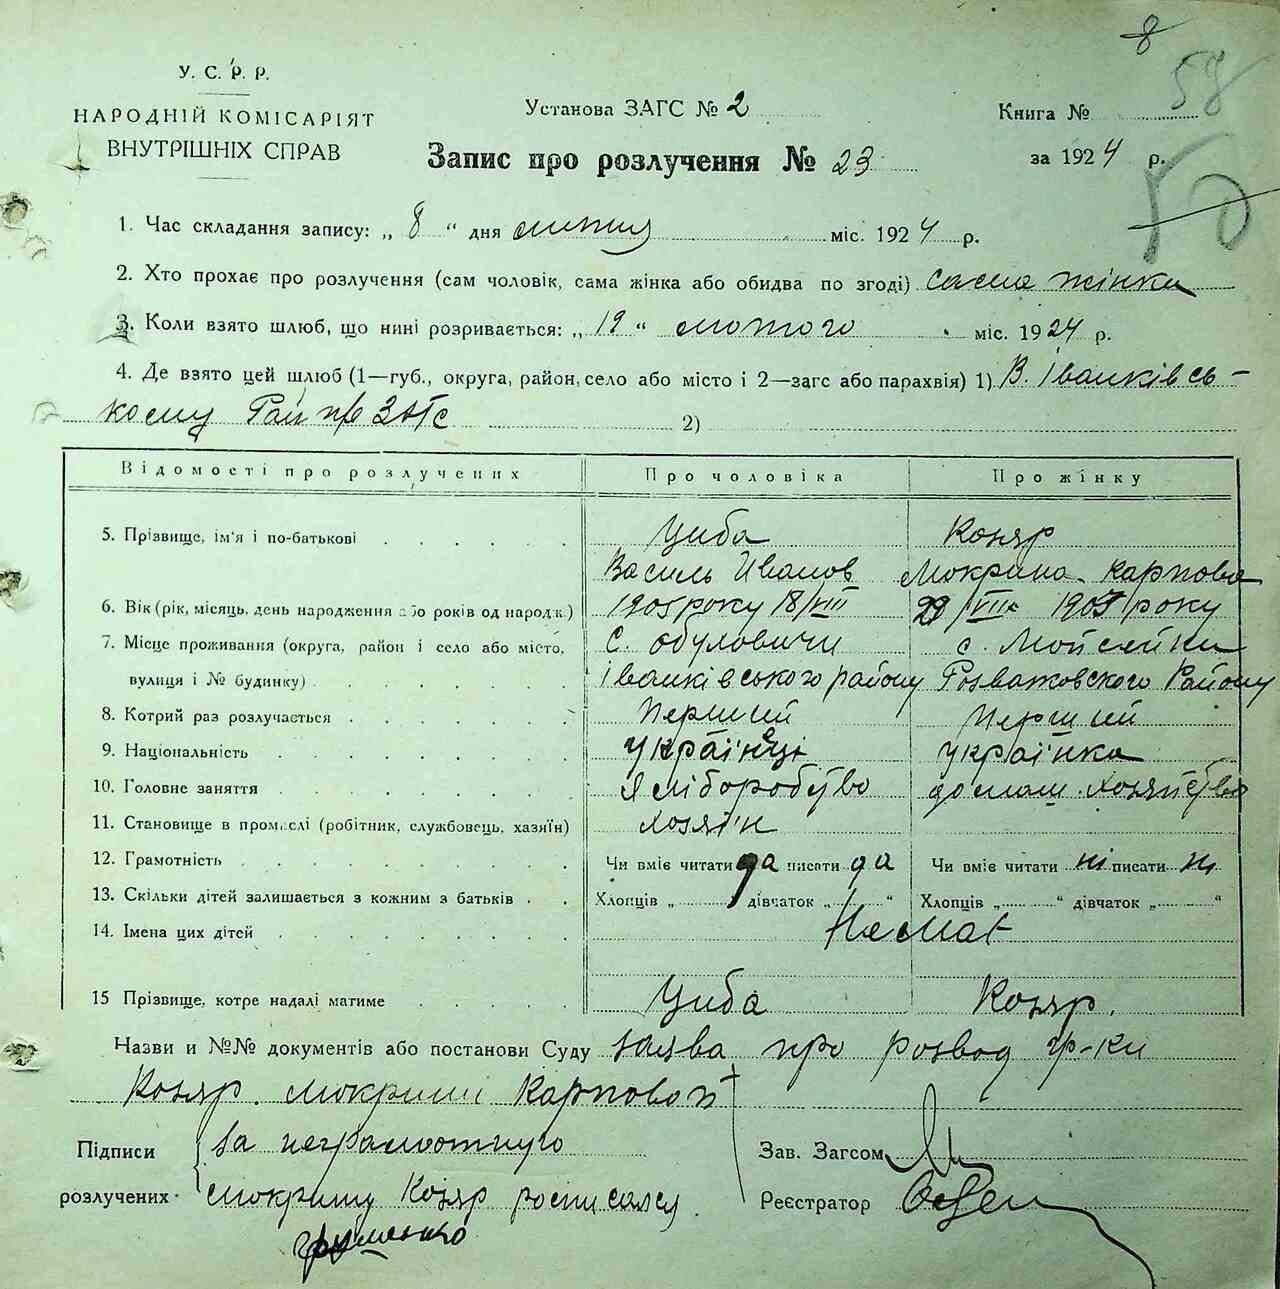 8
58
У. С. Р. Р.
НАРОДНІЙ КОМІСАРІЯТ
ВНУТРІШНІХ СПРАВ
Установа ЗАГС № 2
Книга №
Запис про розлучення № 23
за 1924 р.
1. Час складання запису: „ 8 “ дня липня міс. 1924 р.
2. Хто прохає про розлучення (сам чоловік, сама жінка або обидва по згоді) сама жінка
3. Коли взято шлюб, що нині розривається: „ 19 “ лютого міс. 1924 р.
4. Де взято цей шлюб (1—губ., округа, район, село або місто і 2—загс або парахвія) 1) В. Іванківсь-
кому Рай ЗАГС 2)
Відомості про розлучених Про чоловіка Про жінку
5. Прізвище, ім'я і по-батькові Циба Козяр
Василь Иванов Мокрина Карпова
6. Вік (рік, місяць, день народження або років од народж.) 1905 року 18/VIII 29/VIII 1905 року
7. Місце проживання (округа, район і село або місто, С. Обуловичи с. Мойсейки
вулиця і № будинку) Іванківського району Розважовского Району
8. Котрий раз розлучається Перший Перший
9. Національність українець українка
10. Головне заняття хліборобство домаш. хозяйство
11. Становище в промислі (робітник, службовець, хазяїн) хозяїн
12. Грамотність Чи вміє читати да писати да Чи вміє читати ні писати ні
13. Скільки дітей залишається з кожним з батьків Хлопців „ “ дівчаток „ “ Хлопців „ “ дівчаток „ “
14. Імена цих дітей Немає
15 Прізвище, котре надалі матиме Циба Козяр.
Назви и №№ документів або постанови Суду заява про розвод гр-ки
Козяр. Мокрини Карповой
Підписи За неграмотную Зав. Загсом
розлучених Мокрину Козяр росписался Реєстратор